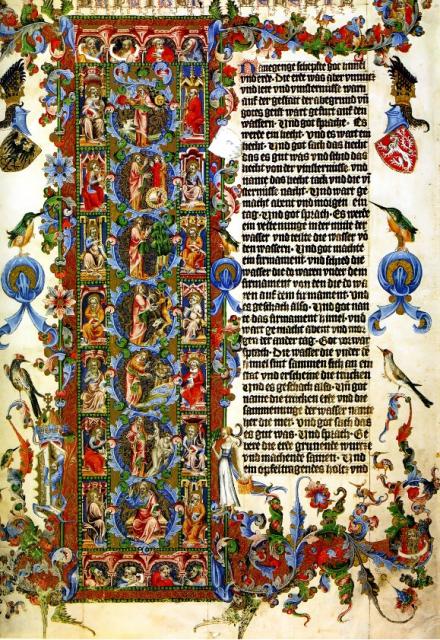 Danegenge schepfte got himel
vnd erde. Die erde was aber vnnucz
vnd lere vnd vinsternisse warn
auf der gestalt der abgrund vñ
gotes geist wart gefurt auf den
wassern. Vnd got sprach. Es
werde ein liecht. vnd es wart ein
liecht. Vnd got sach das liecht
das es gut was vnd schid das
liecht von der vinsternisse. vnd
nante das liecht tack vnd die vī
sternisse nacht. Vnd wart ge
macht abent vnd morgen ein
tag. Vnd got sprach. Es werde
ein vestenunge in der mitte der
wasser vnd teilte die wasser vō
den wassern. Vnd got machte
ein firmament. vnd scheid die
wasser die do waren vnder dem
firmament von den die do wa
ren auf dem firmament. vnd
es geschach also. Vnd got nan
te das firmament himel. vnd
wart gemacht abent vnd mor
gen der ander tag. Got vorwar
sprach. Die wasser die vnder dē
himel sint sammen sich an ein
stat vnd erscheine die trucken
Vnd es geschach also. Vñ got
nante die trucken erde vnd die
sammenunge der wasser nante
her die mer. vnd got sach das
es gut was. Vnd sprach. Ge
bere die erde grunende wurcz
vnd machende samen. Vnd
ein opfeltragendes holcz vnd